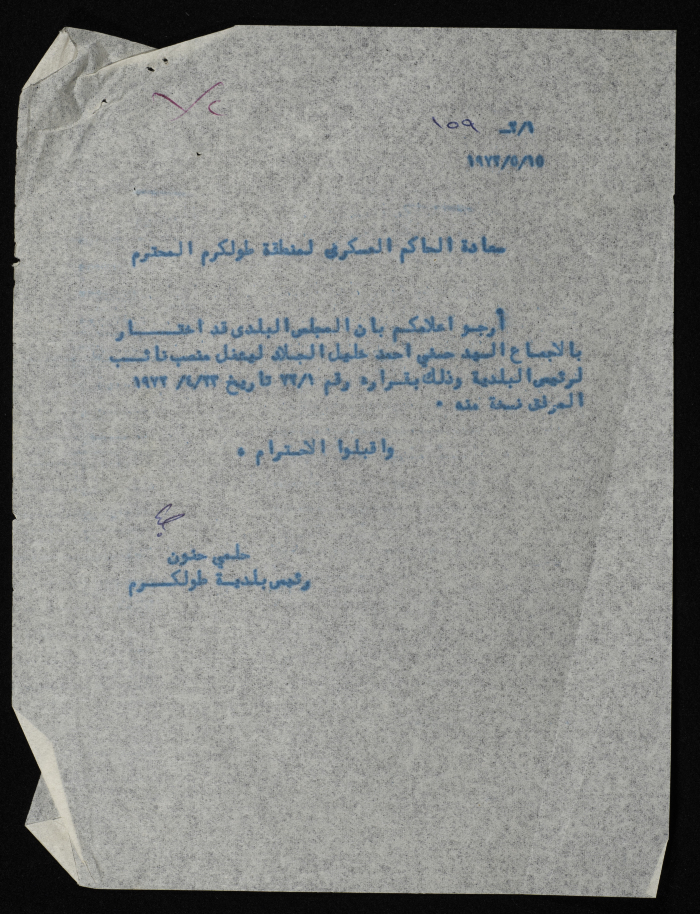 ٢/٩ــ ١٥٩
١٩٧٢/٥/١٥
سعادة الحاكم العسكري لمنطقة طولكرم المحترم
أرجو اعلامكم بان المجلس البلدى قد اختــــــار
بالاجماع السيد حسني احمد خليل الجلاد ليشغل منصب نائب
لرئيس البلدية وذلك بقراره رقم ٢٢/١ تاريخ ٤/٢٣/ ١٩٧٢
المرفق نسخة منه ٠
واقبلوا الاحترام ٠
حلمي حنون
رئيس بلديـة طولكـــرم